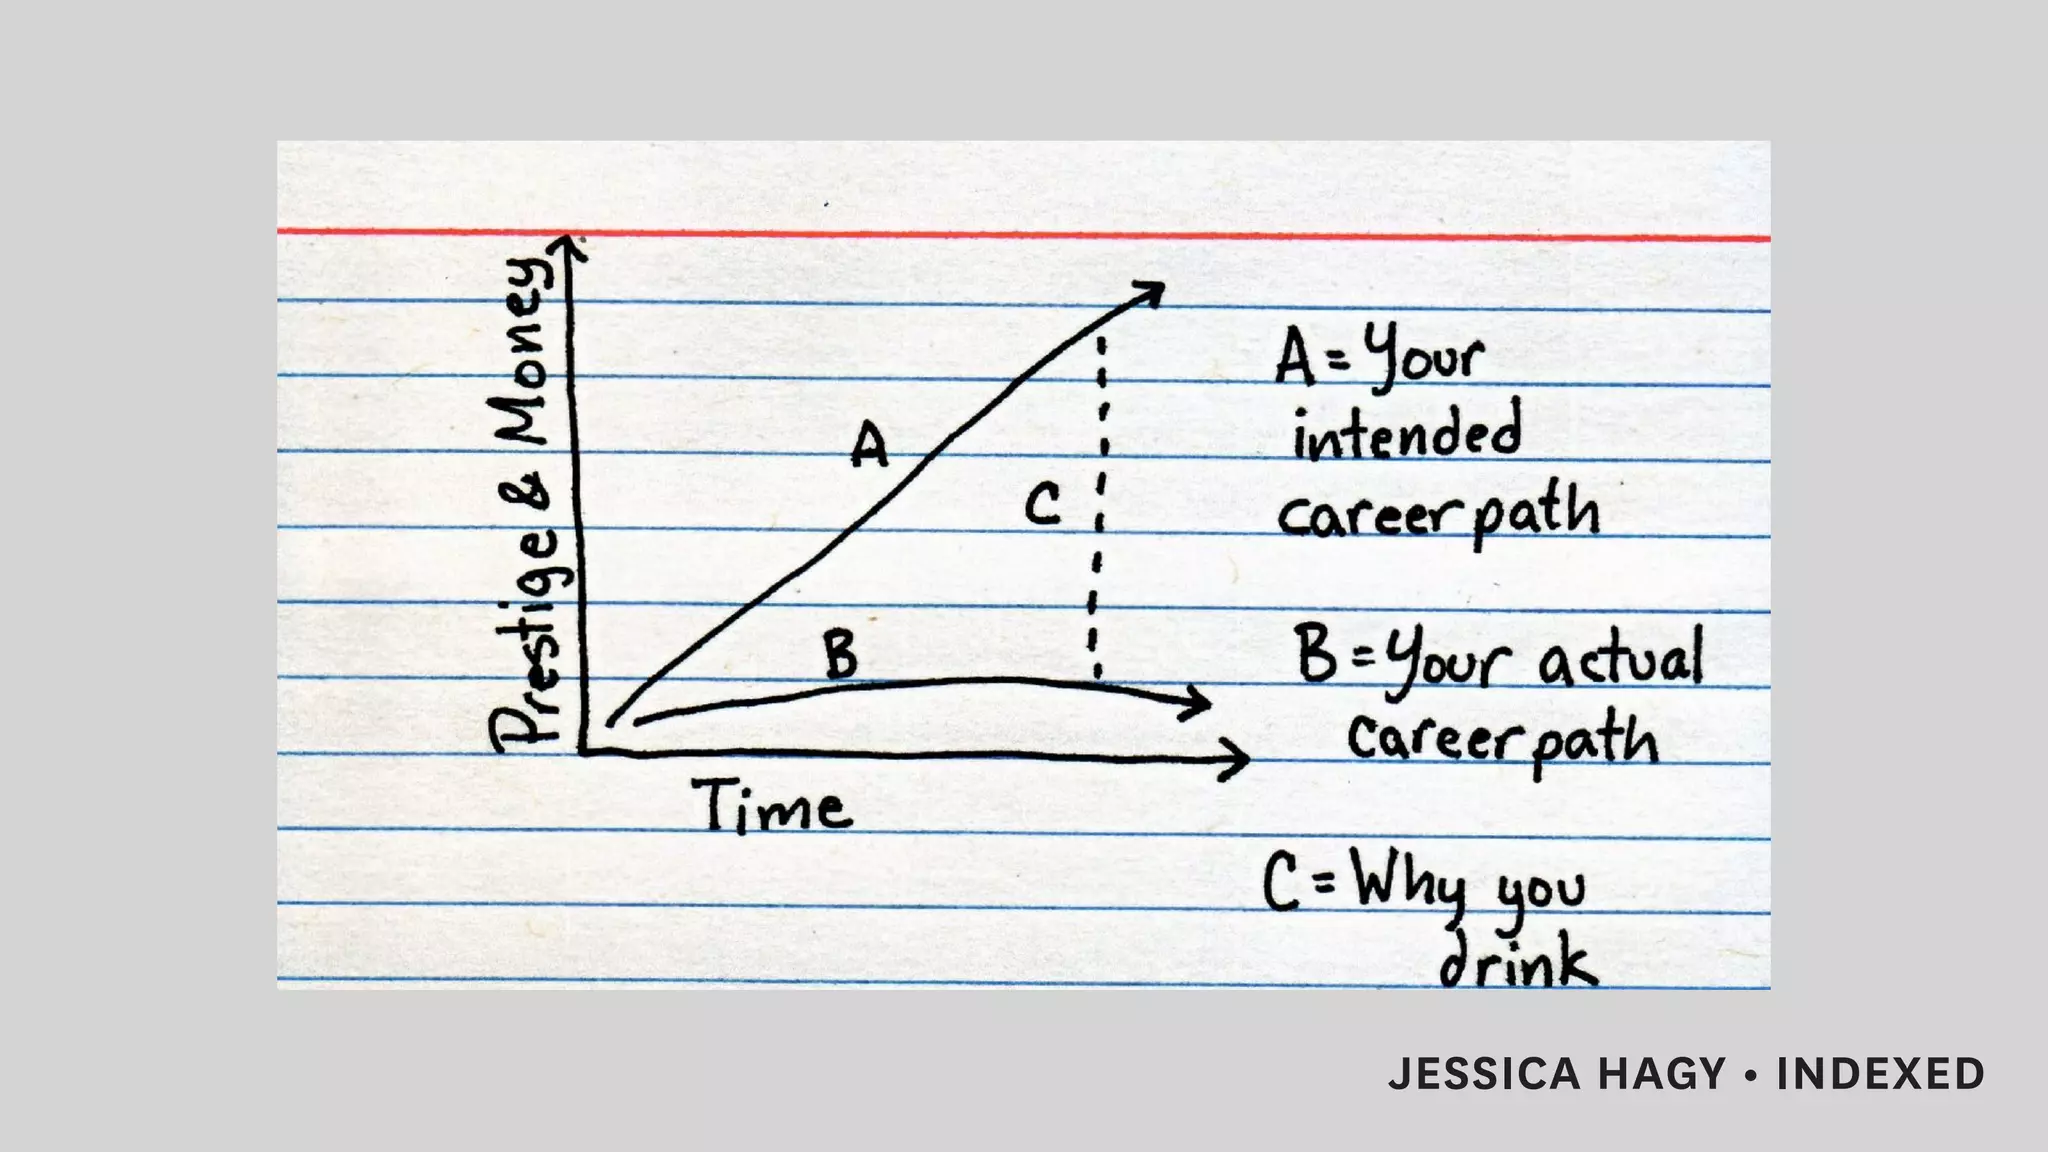 Prestige & Money
A
C
B
Time
A = Your
intended
career path
B = Your actual
career path
C = Why you
drink
JESSICA HAGY • INDEXED